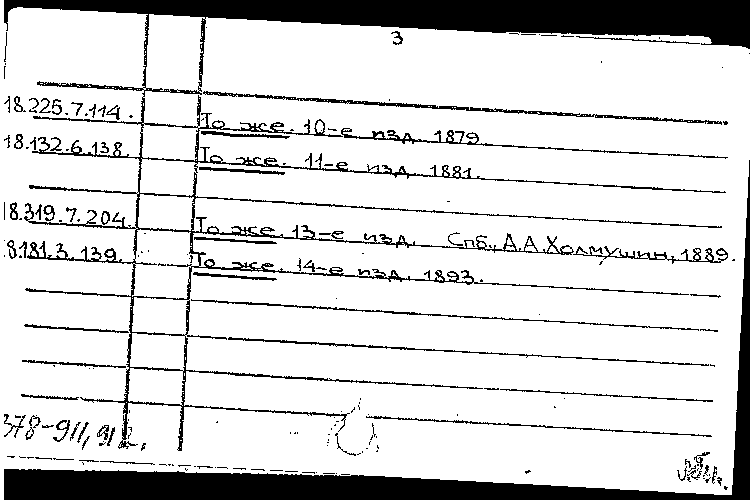 3
18.225.7.114. То же. 10-е изд. 1879.
18.132.6.138. То же. 11-е изд. 1881.
18.319.7.204. То же. 13-е изд. Спб., А.А.Холмушин, 1889.
8.181.3.139. То же. 14-е изд. 1893.
378-911,